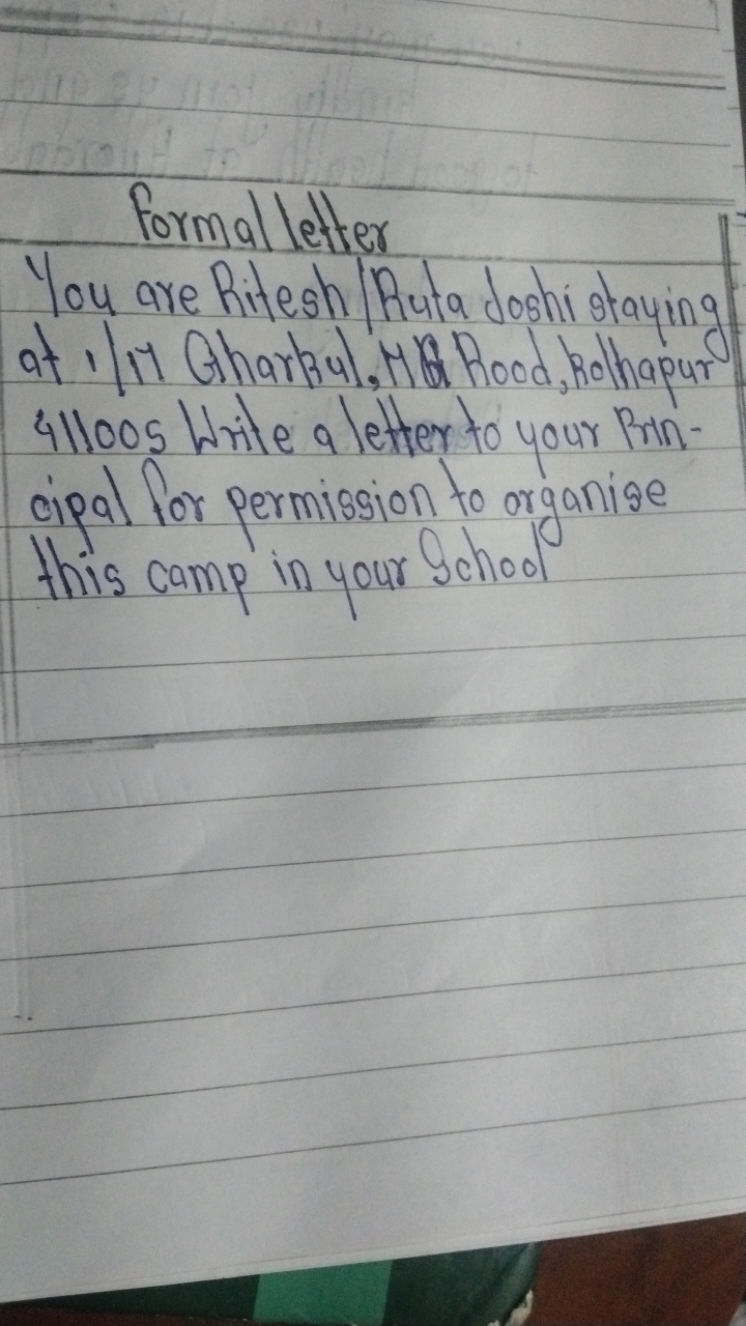 Formal letter
You are Ritesh/Ruta Joshi staying
at 1/17 Gharkul, MG Road, Kolhapur
411005 Write a letter to your Prin-
cipal for permission to organise
this camp in your School